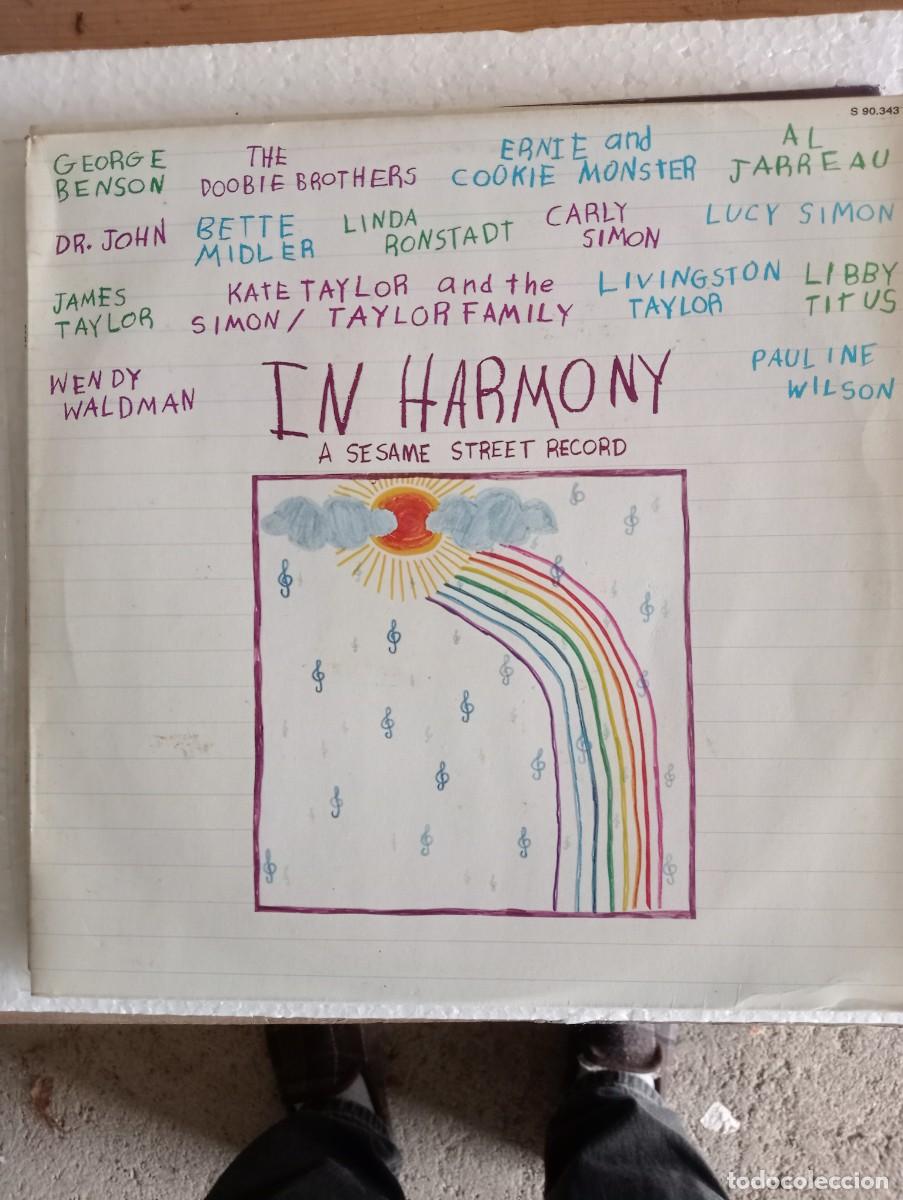 S 90.343
GEORGE BENSON
THE DOOBIE BROTHERS
ERNIE and COOKIE MONSTER
AL JARREAU
DR. JOHN
BETTE MIDLER
LINDA RONSTADT
CARLY SIMON
LUCY SIMON
JAMES TAYLOR
KATE TAYLOR and the
SIMON/ TAYLOR FAMILY
LIVINGSTON TAYLOR
LIBBY TITUS
WENDY WALDMAN
IN HARMONY
A SESAME STREET RECORD
PAULINE WILSON
todocoleccion